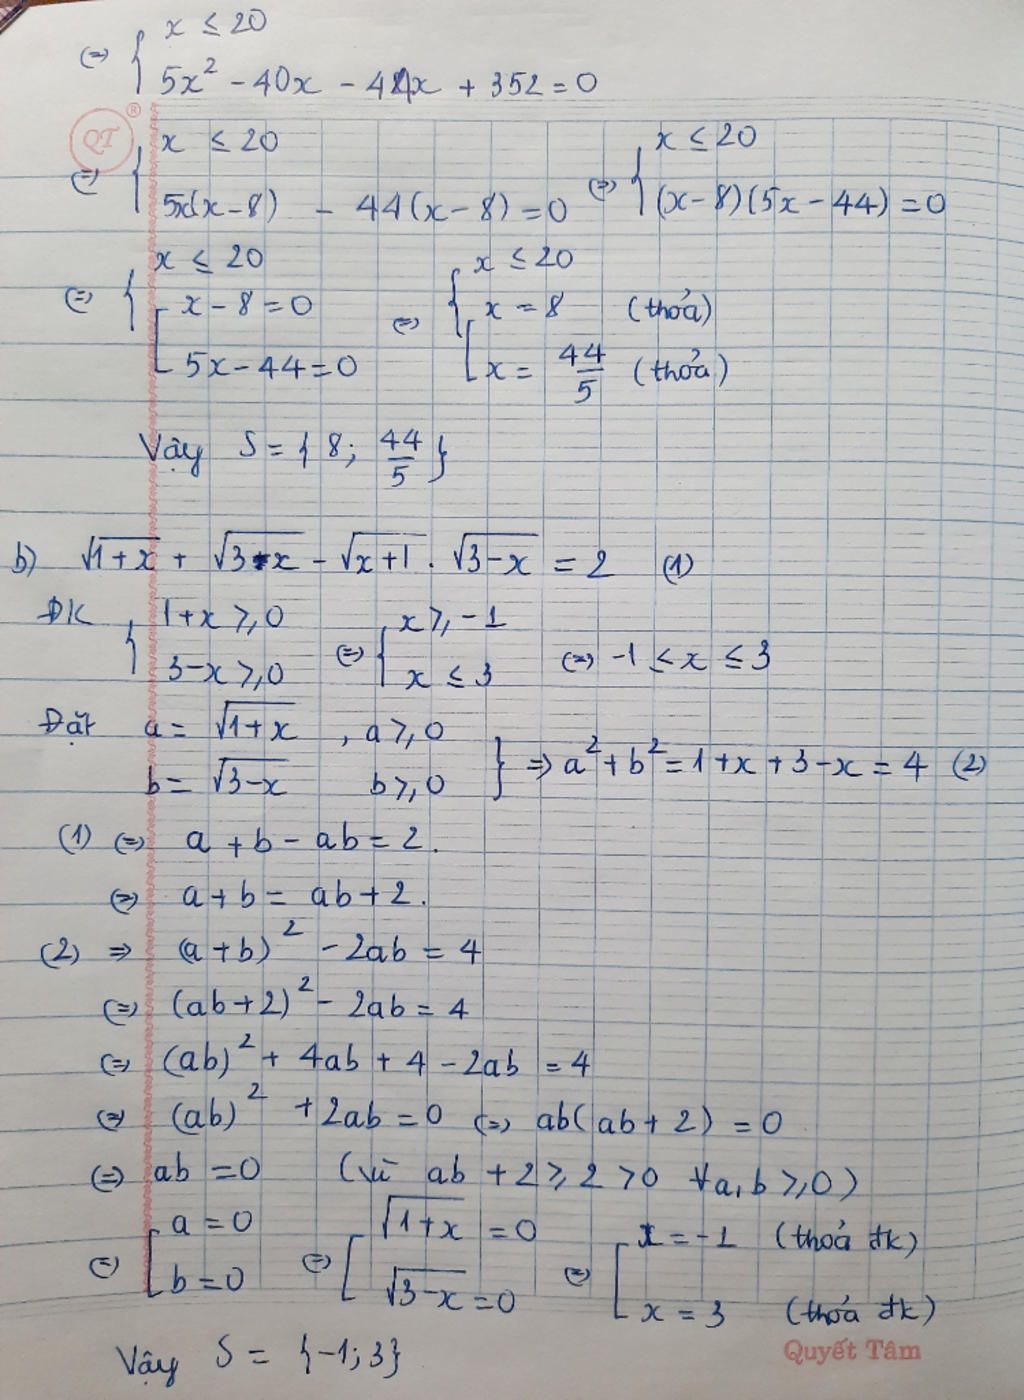 ⇔ { x ≤ 20
5x² - 40x - 44x + 352 = 0
QT ®
⇔ { x ≤ 20
5x(x-8) - 44(x-8) = 0 ⇔ { x ≤ 20
(x-8)(5x-44) = 0
⇔ { x ≤ 20
[ x-8=0
5x-44=0 ⇔ { x ≤ 20
[ x = 8 (thỏa)
x = 44/5 (thỏa)
Vậy S = { 8; 44/5 }
b) √(1+x) + √(3-x) - √(x+1) . √(3-x) = 2 (1)
ĐK { 1+x ≥ 0
3-x ≥ 0 ⇔ { x ≥ -1
x ≤ 3 ⇔ -1 ≤ x ≤ 3
Đặt a = √(1+x) , a ≥ 0
b = √(3-x) b ≥ 0 } ⇒ a² + b² = 1+x+3-x = 4 (2)
(1) ⇔ a + b - ab = 2.
⇔ a + b = ab + 2.
(2) ⇒ (a+b)² - 2ab = 4
⇔ (ab+2)² - 2ab = 4
⇔ (ab)² + 4ab + 4 - 2ab = 4
⇔ (ab)² + 2ab = 0 ⇔ ab(ab+2) = 0
⇔ ab = 0 (vì ab + 2 ≥ 2 > 0 ∀a, b ≥ 0)
⇔ [ a = 0
b = 0 ⇔ [ √(1+x) = 0
√(3-x) = 0 ⇔ [ x = -1 (thỏa đk)
x = 3 (thỏa đk)
Vậy S = {-1; 3}
Quyết Tâm